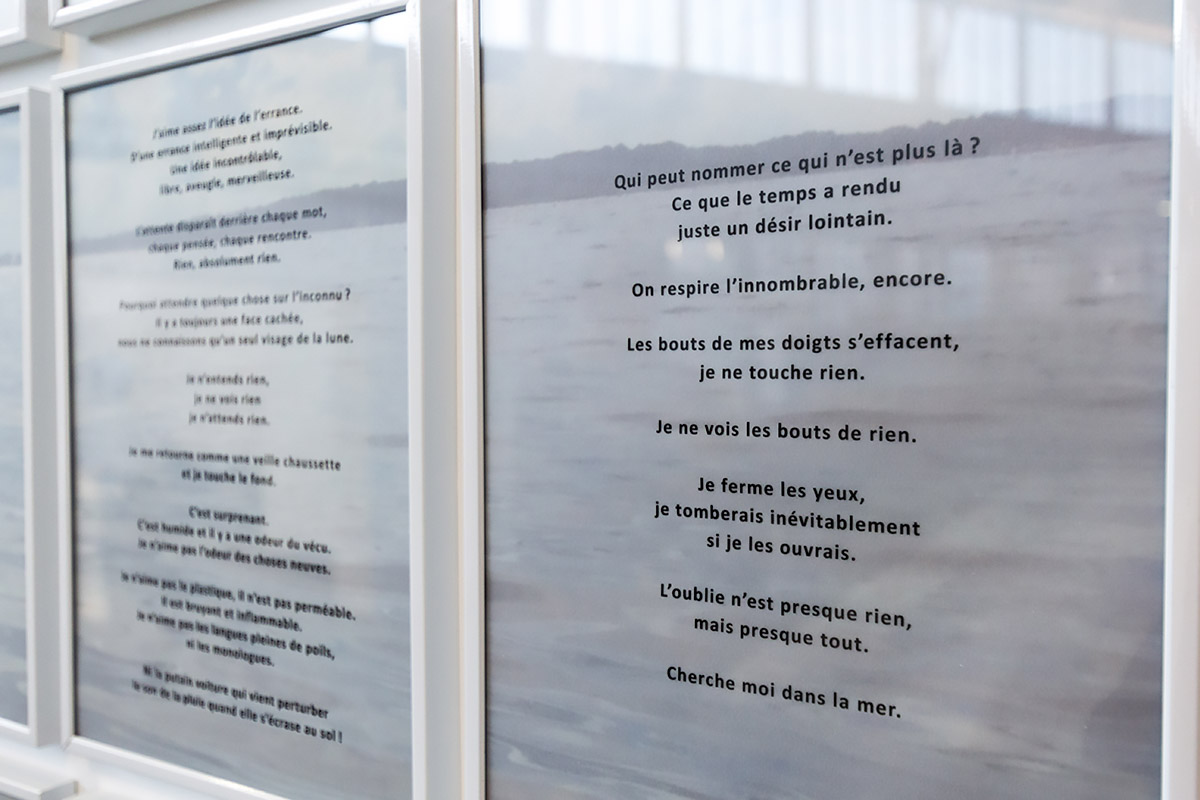 J'aime assez l'idée de l'errance.
D'une errance intelligente et imprévisible.
Une idée incontrôlable,
libre, aveugle, merveilleuse.
L'attente disparaît derrière chaque mot,
chaque pensée, chaque rencontre.
Rien, absolument rien.
Pourquoi attendre quelque chose sur l'inconnu ?
Il y a toujours une face cachée,
nous ne connaissons qu'un seul visage de la lune.
Je n'entends rien,
je ne vois rien
je n'attends rien.
Je me retourne comme une veille chaussette
et je touche le fond.
C'est surprenant.
C'est humide et il y a une odeur du vécu.
Je n'aime pas l'odeur des choses neuves.
Je n'aime pas le plastique, il n'est pas perméable.
Il est bruyant et inflammable.
Je n'aime pas les langues pleines de poils,
ni les monologues.
Ni la putain voiture qui vient perturber
le son de la pluie quand elle s'écrase au sol !
Qui peut nommer ce qui n'est plus là ?
Ce que le temps a rendu
juste un désir lointain.
On respire l'innombrable, encore.
Les bouts de mes doigts s'effacent,
je ne touche rien.
Je ne vois les bouts de rien.
Je ferme les yeux,
je tomberais inévitablement
si je les ouvrais.
L'oublie n'est presque rien,
mais presque tout.
Cherche moi dans la mer.